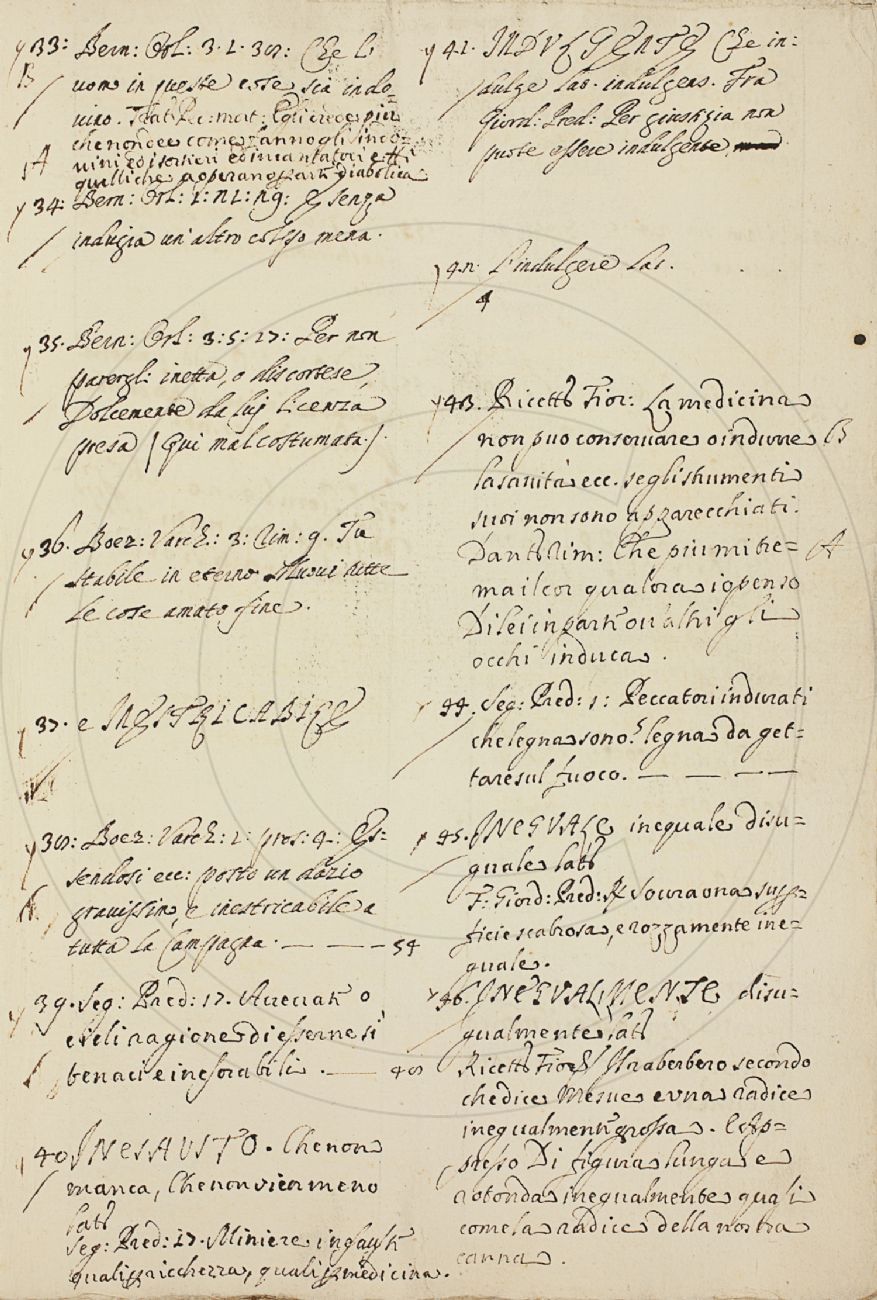 33: Bern: Orl: 3. 1. 38: Che l'
B uomo in queste cose sia indo=
vino. Trat: Pec: mort: Egli crede più
che non dee come fanno gli indo=
A vini ed i sortieri ed incantatori e tti
quelli che aoperano p arte diabolica
34: Bern: Orl: 2: e senza
indugia un'altro colpo mena.
35. Bern: Orl: 3: 5: 27: Per non
parergl: inetta, o discortese,
Dolcemente da luj licenza
presa (Qui mal costumata.).
36. Boez: Varch: 3: Rim: 9. Tu
stabile in eterno muovi tutte
le cose amato fine.
37. e INESTRICABILE
38: Boez: Varch: 1: pros: 4: Es=
sendosi ecc: posto un dazio
gravissimo, e inestricabile a
tutta la Campagna. — — — 54
39. Seg: Pred: 17. Avevate o
cieli ragione di esserne sì
tenaci e inesorabili. — 48
40 INESAUSTO. Che non
manca, Che non vien meno
lat:
Seg: Pred: 17. Miniere inesauste
quali p ricchezza, quali p medicina.
41. INDULGENTE Che in:
dulge lat. indulgens. Fra
Giord: Pred: Per giustizia non
puote essere indulgente
42. L'indulgere lat.
4
43. Ricett: Fior: La medicina
non puo conservare o indurre B
la sanità ecc. se gli strumenti
suoi non sono apparecchiati.
Dant: Rim: Che più mi tre= A
ma il cor qualora io penso
Di lei in parte ov'altri gli
occhi induca.
44. Seg: Pred: 1: Peccatori indurati
che legna sono? legna da get=
tare sul fuoco. — — — —
45. INEGUALE inequale disu=
guale lat:
F: Giord: Pred: R Sovra una supp=
ficie scabrosa, e rozzamente ine=
guale.
46. INEGUALMENTE disu=
gualmente lat:
Ricett: Fior: Il raberbero secondo
che dice Mesue e una radice
inegualmente grossa. E app=
presso Di figura lunga e
rotonda inegualmente quasi
come la radice della nostra
canna.